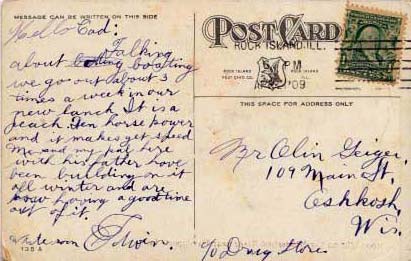 MESSAGE CAN BE WRITTEN ON THIS SIDE
Hello Cad:
Talking
about boating
we go out about 3
times a week in our
new launch. It is a
peach. Ten horse power
and it makes get speed
Me and my pal here
with his father have
been building on it
all winter and are
now having a good time
out of it.
Edwin.
135 A
POST CARD
ROCK ISLAND, ILL.
PM
ROCK ISLAND
POST CARD CO.
ROCK ISLAND
ILL.
'09
THIS SPACE FOR ADDRESS ONLY
Mr Olin Geiger,
109 Main St,
Oshkosh,
Wis.
c/o Drug Store